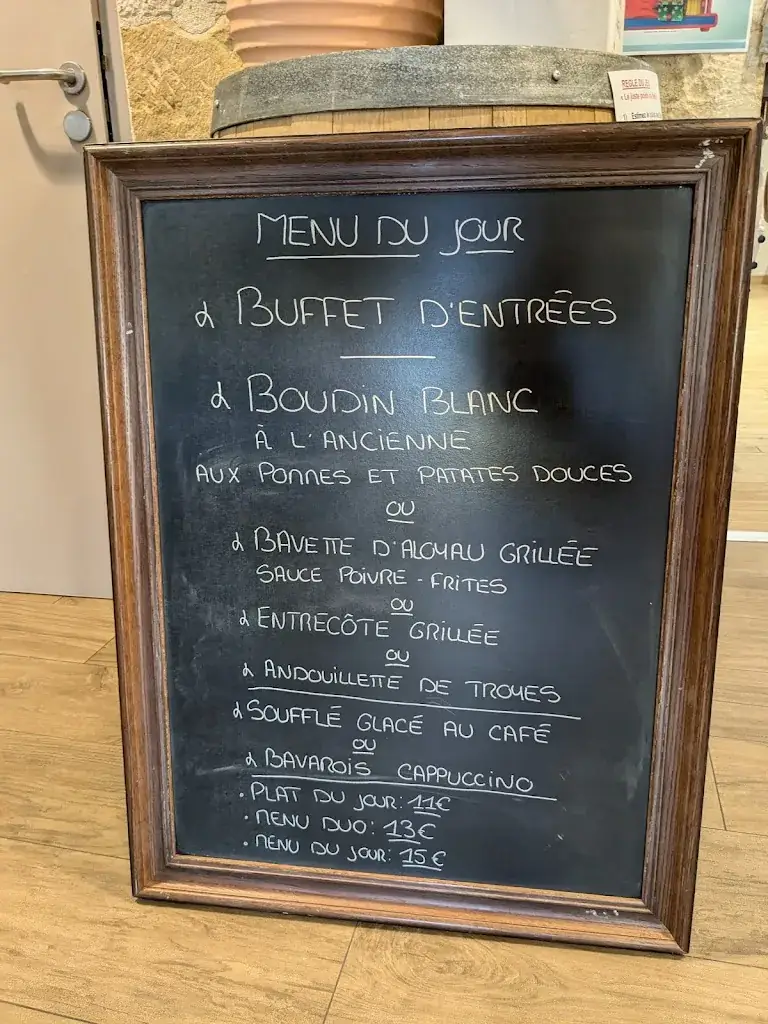 REGLE DU JEU
MENU DU JOUR
BUFFET D'ENTRÉES
BOUDIN BLANC
À L'ANCIENNE
AUX POMMES ET PATATES DOUCES
OU
BAVETTE D'ALOYAU GRILLÉE
SAUCE POIVRE - FRITES
OU
ENTRECÔTE GRILLÉE
OU
ANDOUILLETTE DE TROYES
SOUFFLÉ GLACÉ AU CAFÉ
OU
BAVAROIS CAPPUCCINO
• PLAT DU JOUR: 11€
• MENU DUO: 13€
• MENU DU JOUR: 15€